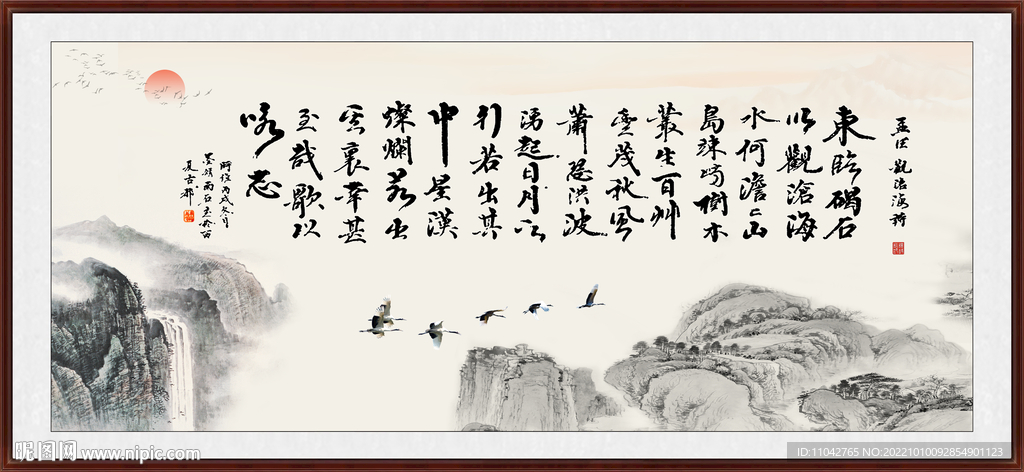 孟德 觀滄海詩
東臨碣石
以觀滄海
水何澹〻山
島竦峙樹木
叢生百艸
豐茂秋風
蕭瑟洪波
湧起日月之
行若出其
中星漢
燦爛若出
其裏幸甚
至哉歌以
詠志
丙戌冬月
夏古都
昵图网 www.nipic.com
ID:11042765 NO:20221010092854901123